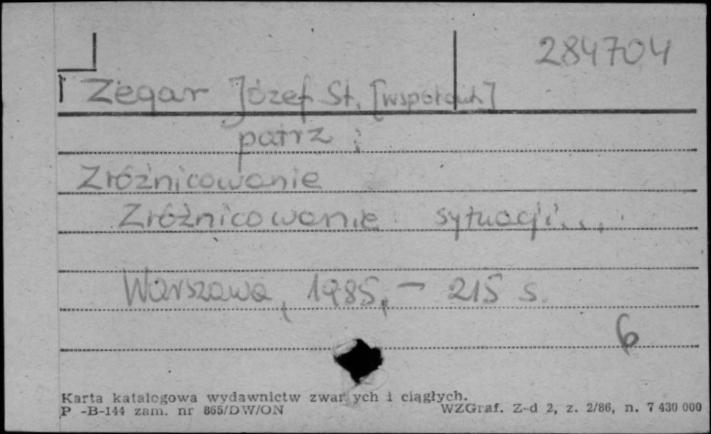 284704
Zegar Józef St. [współaut.]
patrz:
Zróżnicowanie
Zróżnicowanie sytuacji...
Warszawa, 1985, - 215 s.
6
Karta katalogowa wydawnictw zwar ych i ciągłych.
P -B-144 zam. nr 865/DW/ON WZGraf. Z-d 2, z. 2/86, n. 7 430 000